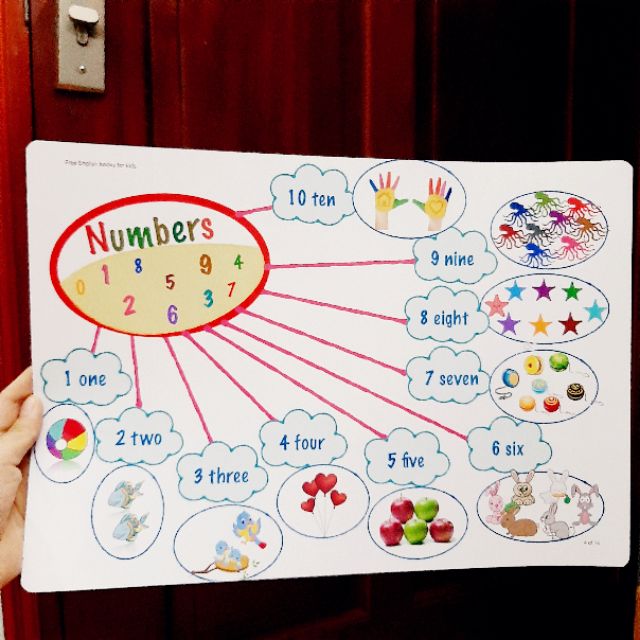 Free English books for kids
Numbers
0 1 8 5 9 4
2 6 3 7
10 ten
9 nine
8 eight
7 seven
6 six
5 five
4 four
3 three
2 two
1 one